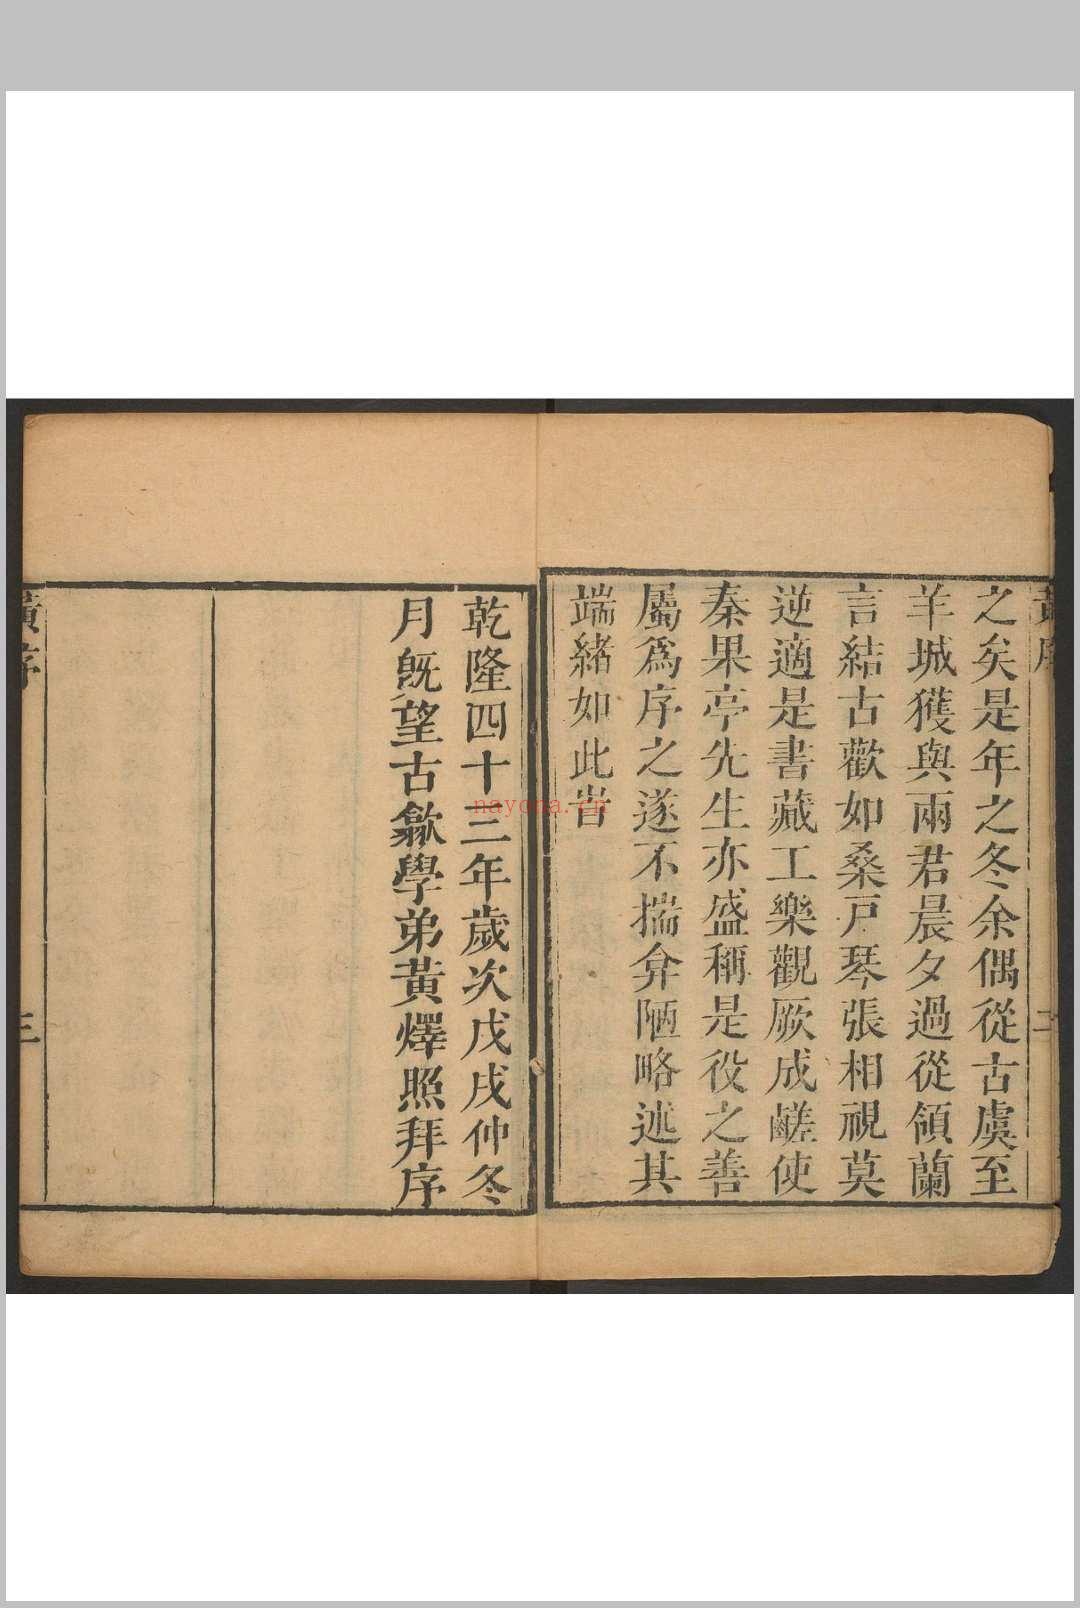 黃序
二
之矣是年之冬余偶從古虞至
羊城獲與兩君晨夕過從領蘭
言結古歡如桑戸琴張相視莫
逆適是書藏工樂觀厥成鹺使
秦果亭先生亦盛稱是役之善
屬爲序之遂不揣弇陋略述其
端緒如此旹
乾隆四十三年歲次戊戌仲冬
月旣望古歙學弟黃燡照拜序
黃序
三
nayona.cn